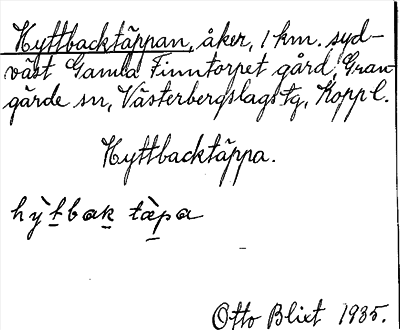 Hyttbacktäppan, åker, 1 km. syd-
väst Gamla Finntorpet gård, Gran-
gärde sn, Västerbergslags tg, Koppl.
Hyttbacktäppa.
hỳt̠bak̠ tæ̀p̠a
Otto Blixt 1935.